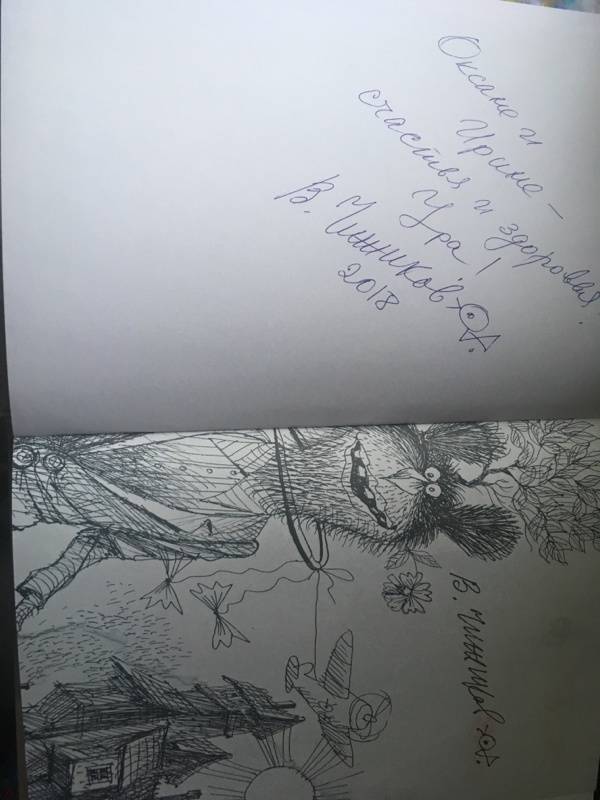 Оксане и
Ирине -
счастья и здоровья!
Ура!
В. Чижиков-Ю.А.
2018
В. Чижиков-Ю.А.